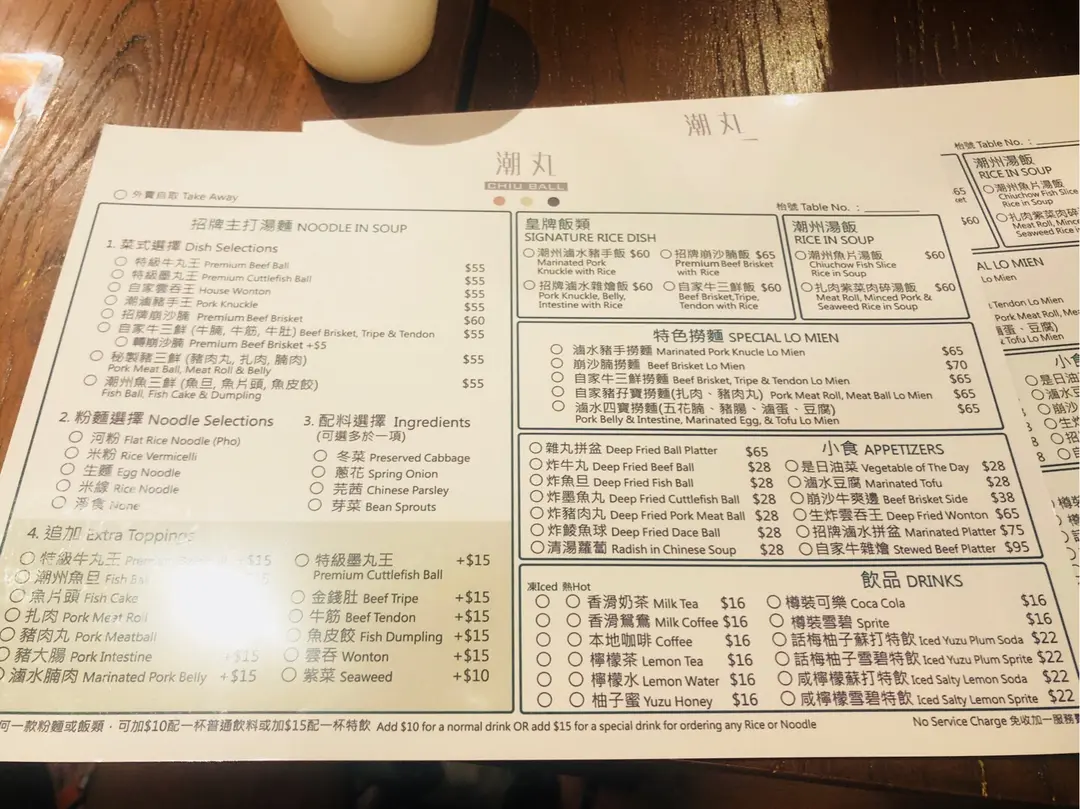 潮丸
潮丸
CHIU BALL
外賣自取 Take Away
枱號 Table No. :
招牌主打湯麵 NOODLE IN SOUP
1. 菜式選擇 Dish Selections
特級牛丸王 Premium Beef Ball $55
特級墨丸王 Premium Cuttlefish Ball $55
自家雲吞王 House Wonton $55
潮滷豬手王 Pork Knuckle $55
招牌崩沙腩 Premium Beef Brisket $60
自家牛三鮮 (牛腩, 牛筋, 牛肚) Beef Brisket, Tripe & Tendon $55
轉崩沙腩 Premium Beef Brisket +$5
秘製豬三鮮 (豬肉丸, 扎肉, 腩肉) $55
Pork Meat Ball, Meat Roll & Belly
潮州魚三鮮 (魚旦, 魚片頭, 魚皮餃) $55
Fish Ball, Fish Cake & Dumpling
2. 粉麵選擇 Noodle Selections
河粉 Flat Rice Noodle (Pho)
米粉 Rice Vermicelli
生麵 Egg Noodle
米線 Rice Noodle
淨食 None
3. 配料選擇 Ingredients
(可選多於一項)
冬菜 Preserved Cabbage
蔥花 Spring Onion
芫茜 Chinese Parsley
芽菜 Bean Sprouts
4. 追加 Extra Toppings
特級牛丸王 $15
潮州魚旦 Fish
魚片頭 Fish Cake
扎肉 Pork Meat Roll
豬肉丸 Pork Meatball
豬大腸 Pork Intestine $15
滷水腩肉 Marinated Pork Belly +$15
特級墨丸王 +$15
Premium Cuttlefish Ball
金錢肚 Beef Tripe +$15
牛筋 Beef Tendon +$15
魚皮餃 Fish Dumpling +$15
雲吞 Wonton +$15
紫菜 Seaweed +$10
皇牌飯類
SIGNATURE RICE DISH
潮州滷水豬手飯 $60
Marinated Pork
Knuckle with Rice
招牌崩沙腩飯 $65
Premium Beef Brisket
with Rice
招牌滷水雜燴飯 $60
Pork Knuckle, Belly,
Intestine with Rice
自家牛三鮮飯 $60
Beef Brisket, Tripe,
Tendon with Rice
潮州湯飯
RICE IN SOUP
潮州魚片湯飯 $60
Chiuchow Fish Slice
Rice in Soup
扎肉紫菜肉碎湯飯 $60
Meat Roll, Minced Pork &
Seaweed Rice in Soup
特色撈麵 SPECIAL LO MIEN
滷水豬手撈麵 Marinated Pork Knucle Lo Mien $65
崩沙腩撈麵 Beef Brisket Lo Mien $70
自家牛三鮮撈麵 Beef Brisket, Tripe & Tendon Lo Mien $65
自家豬孖寶撈麵(扎肉、豬肉丸) Pork Meat Roll, Meat Ball Lo Mien $65
滷水四寶撈麵(五花腩、豬腸、滷蛋、豆腐) $65
Pork Belly & Intestine, Marinated Egg, & Tofu Lo Mien
小食 APPETIZERS
雜丸拼盆 Deep Fried Ball Platter $65
炸牛丸 Deep Fried Beef Ball $28
炸魚旦 Deep Fried Fish Ball $28
炸墨魚丸 Deep Fried Cuttlefish Ball $28
炸豬肉丸 Deep Fried Pork Meat Ball $28
炸鯪魚球 Deep Fried Dace Ball $28
清湯蘿蔔 Radish in Chinese Soup $28
是日油菜 Vegetable of The Day $28
滷水豆腐 Marinated Tofu $28
崩沙牛爽邊 Beef Brisket Side $38
生炸雲吞王 Deep Fried Wonton $65
招牌滷水拼盆 Marinated Platter $75
自家牛雜燴 Stewed Beef Platter $95
飲品 DRINKS
凍Iced 熱Hot
香滑奶茶 Milk Tea $16
香滑鴛鴦 Milk Coffee $16
本地咖啡 Coffee $16
檸檬茶 Lemon Tea $16
檸檬水 Lemon Water $16
柚子蜜 Yuzu Honey $16
樽裝可樂 Coca Cola $16
樽裝雪碧 Sprite $16
話梅柚子蘇打特飲 Iced Yuzu Plum Soda $22
話梅柚子雪碧特飲 Iced Yuzu Plum Sprite $22
咸檸檬蘇打特飲 Iced Salty Lemon Soda $22
咸檸檬雪碧特飲 Iced Salty Lemon Sprite $22
何一款粉麵或飯類,可加$10配一杯普通飲料或加$15配一杯特飲 Add $10 for a normal drink OR add $15 for a special drink for ordering any Rice or Noodle
No Service Charge 免收加一服務費
枱號 Table No. :
潮州湯飯
RICE IN SOUP
潮州魚片湯飯
Chiuchow Fish Slice
Rice in Soup
扎肉紫菜肉碎
Meat Roll, Minced
Seaweed Rice
$60
Lo Mien
Tendon Lo Mien
Pork Meat Roll, Mea
滷蛋、豆腐)
& Tofu Lo Mien
小食
是日油
滷水豆
崩沙
生炸
招